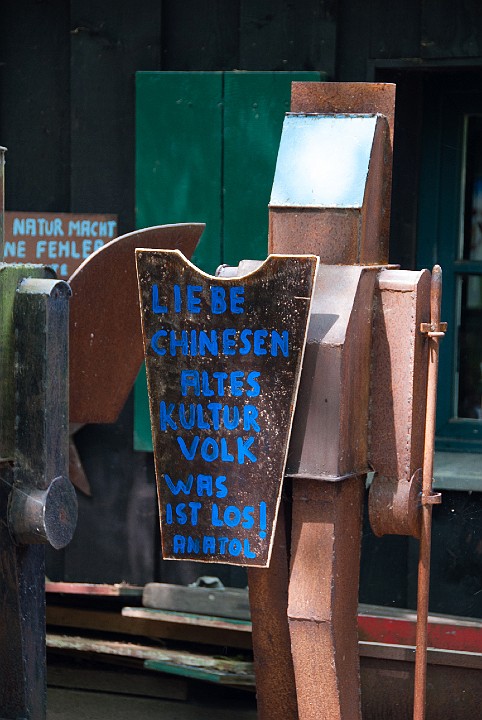 NATUR MACHT
NE FEHLER
LIEBE
CHINESEN
ALTES
KULTUR
VOLK
WAS
IST LOS!
ANATOL